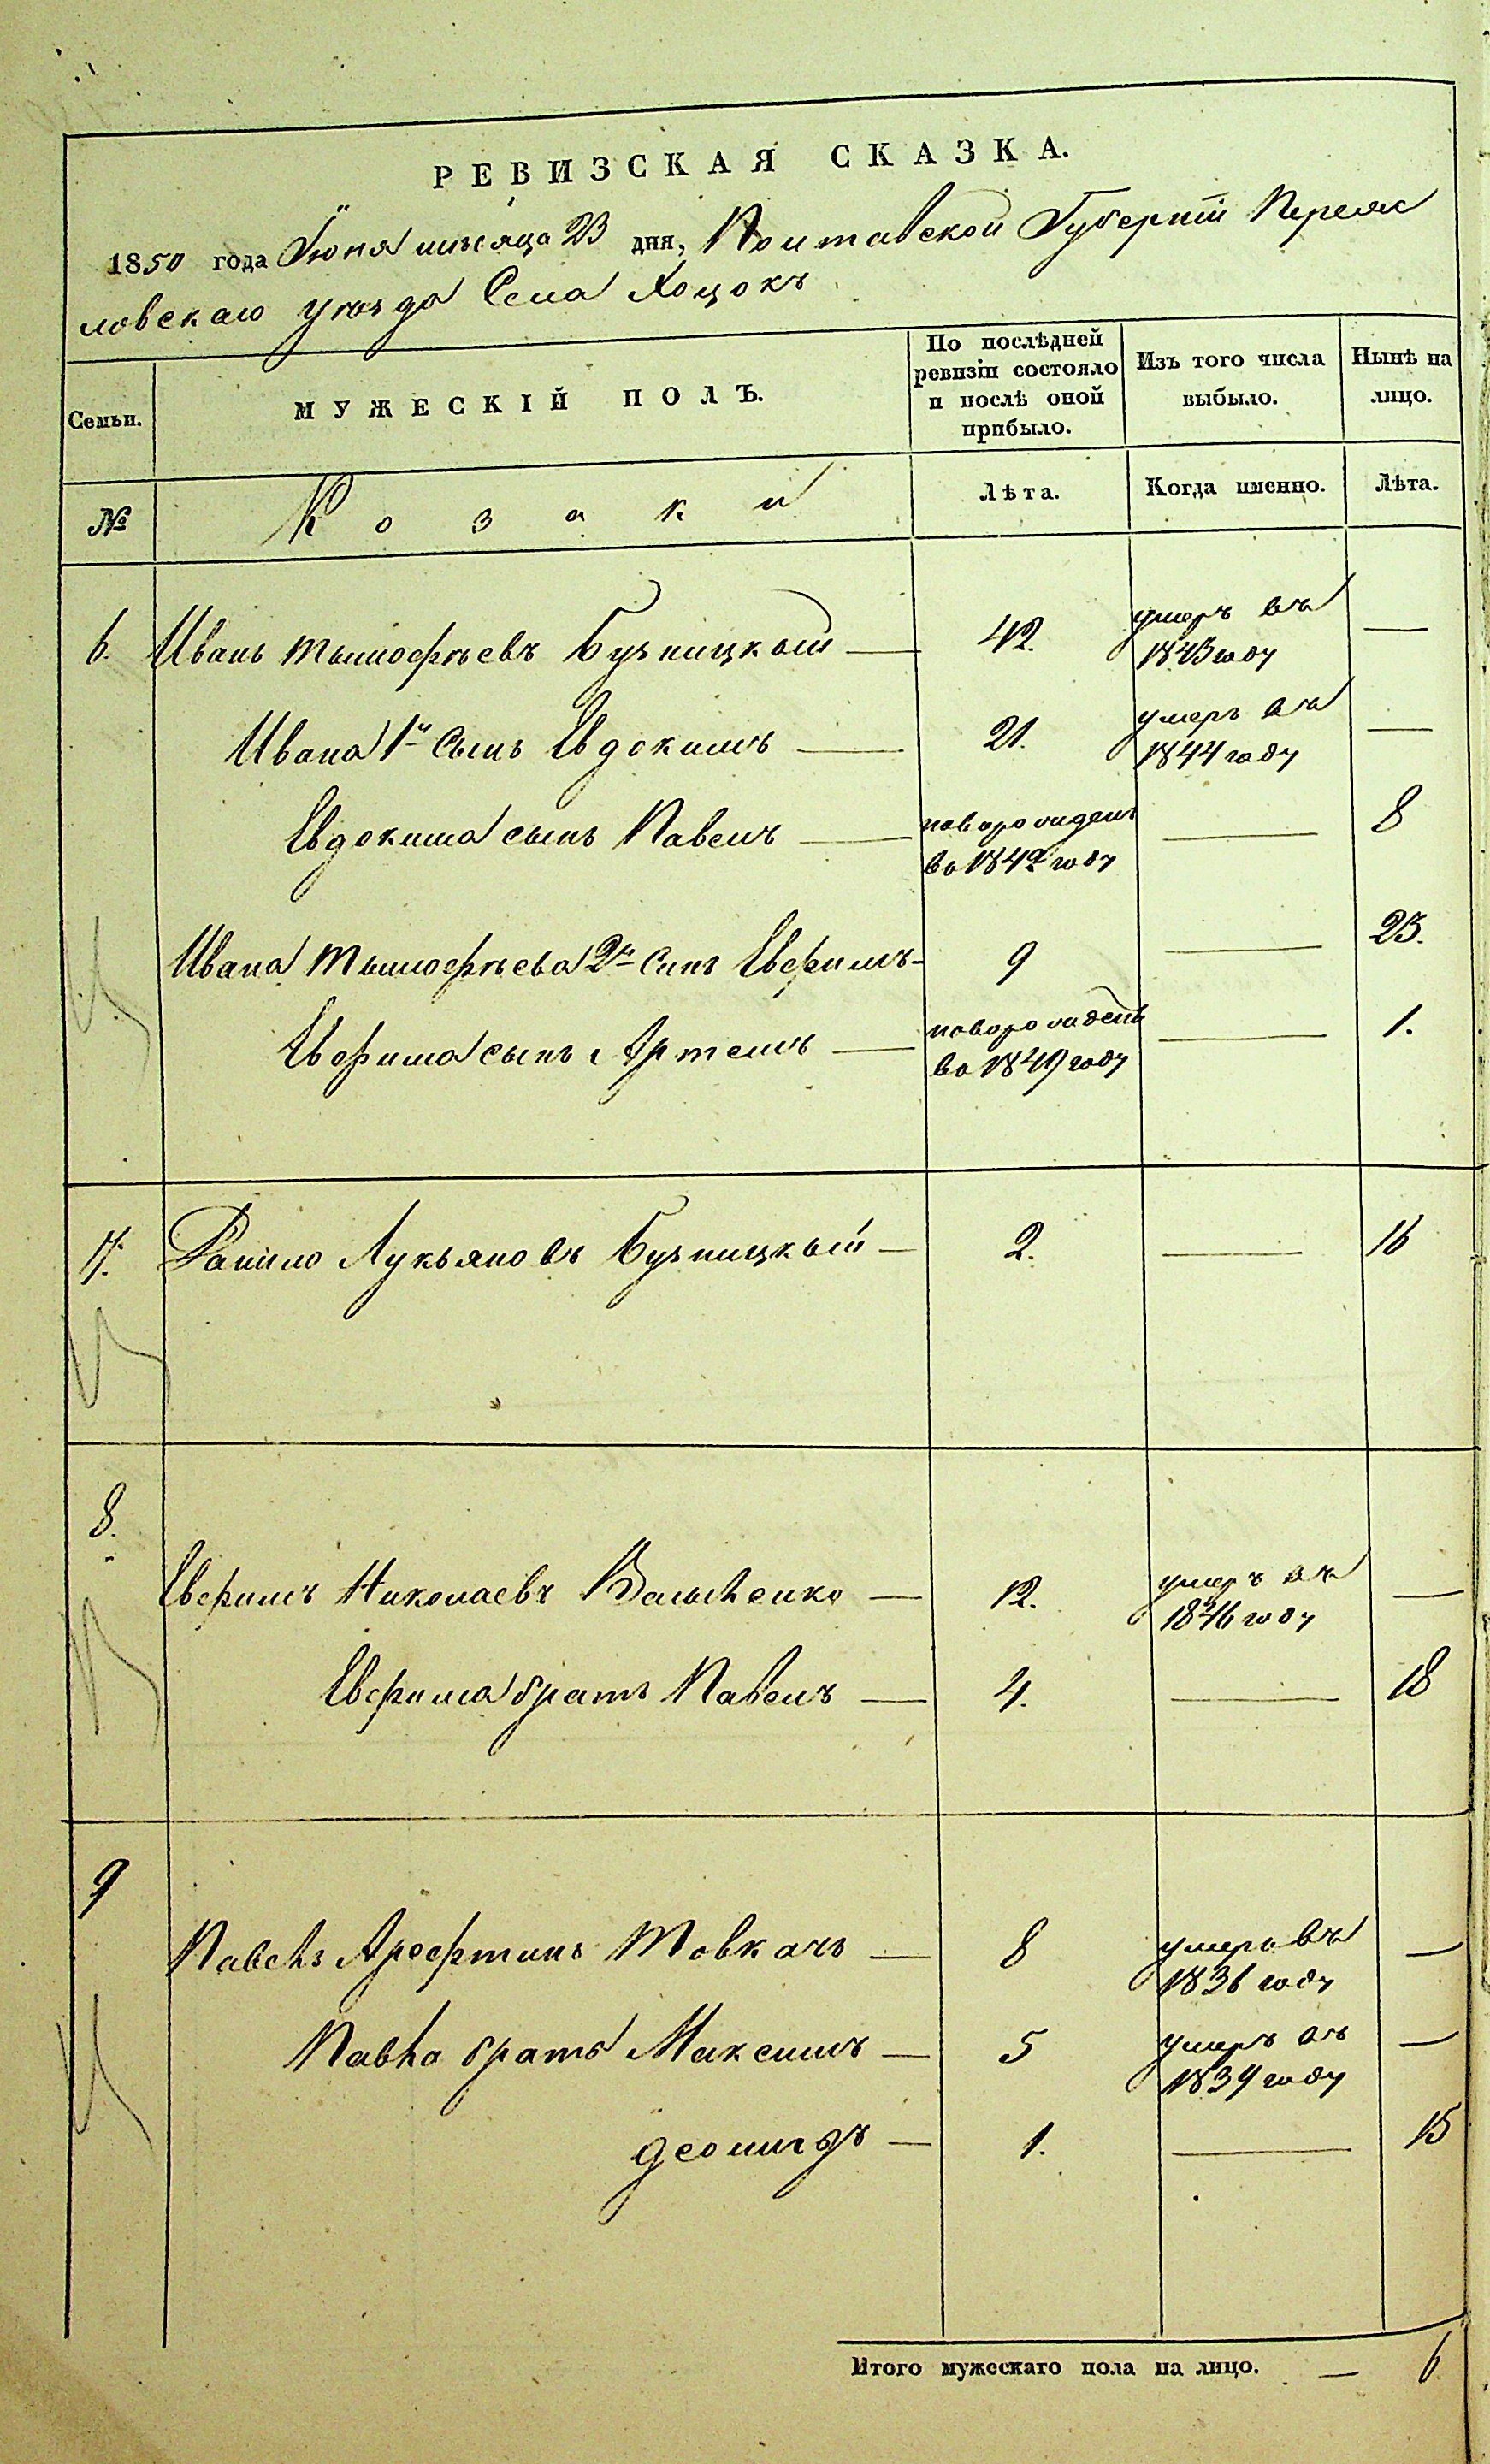 РЕВИЗСКАЯ СКАЗКА.
1850 года Іюня мѣсяца 23 дня, Полтавской Губерніи Переяс
ловскаго уѣзда Села Хоцокъ
Семьи.
МУЖЕСКІЙ ПОЛЪ.
По послѣдней ревизіи состояло и послѣ оной прибыло.
Изъ того числа выбыло.
Нынѣ на лицо.
№
Козаки
Лѣта.
Когда именно.
Лѣта.
6. Иванъ Тымофѣевъ Бузницкый — 42. умеръ въ 1843 году —
Ивана 1й Сынъ Евдокимъ — 21. умеръ въ 1844 году —
Евдокима сынъ Павелъ — новорожденъ во 1842 году — 8
Ивана Тымофѣева 2й Сынъ Ефимъ - 9 — 23.
Ефима сынъ Артемъ — новорожденъ во 1849 году — 1.
7. Данило Лукьяновъ Бузницкый — 2. — 16
8.
Ефимъ Николаевъ — 12. умеръ въ 1846 году —
Ефима братъ Павелъ — 4. — 18
9
Павелъ Арефтинъ Товкачъ — 8 умеръ въ 1836 году —
Павла братъ Максимъ — 5 умеръ въ 1839 году —
— 1. — 15
Итого мужескаго пола на лицо. — 6